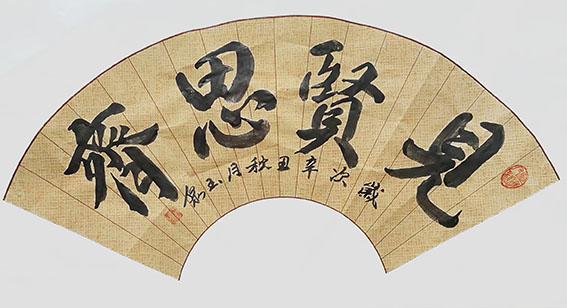 見賢思齊
歲次辛丑秋月玉